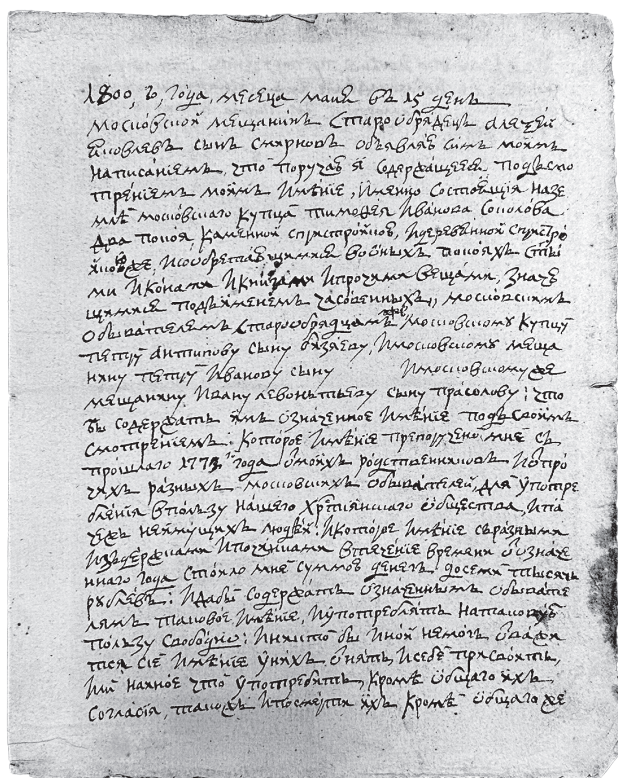 1800, г, года, месеца маия въ 15 день
московской мещанинъ старообрядецъ алеѯей
яковлевъ сынъ смирновъ объявляю симъ моимъ
написаниемъ, что поручаю я содержащееся подъсмо
трѣниемъ моимъ имѣние, именно состоящия назе
млѣ московскаго купца тимофея иванова соколова
два покоя, каменной спристройкою, идеревѣнной спристро
йкою же, исобретающимися воныхъ покояхъ святы
ми иконами икнигами ипрочими вещами, значе
щимися подъименемъ часовенныхъ, московскимъ
обывателемъ старообрядцамъ московскому купцу
петру антипову сыну бязяеву, имосковскому меща
нину петру иванову сыну имосковскому же
мещанину ивану левонтьеву сыну прасолову: что
бы содержать имъ означенное имѣние подъ своимъ
смотрениемъ. которое имѣние препоручено мне съ
прошлаго года отмоихъ родственниковъ ипро
чихъ разныхъ московскихъ обывателей, для употре
бления впользу нашего християнскаго общества, ита
кожъ неимущихъ людей: икоторое имѣние сразными
издержками ипочинками втечение времени означе
ннаго года стоило мне суммою денегъ до семи тысячь
рублевъ: идабы содержать означеннымъ обывате
лямъ таковое имѣние, иупотреблять натаковую
пользу свободно: иникто бы иной немогъ
тся сие имѣние унихъ отнять, исебе присвоить,
ни наиное что употребить, кроме общаго ихъ
согласия, такожъ ипосмерти ихъ, кромѣ общаго же